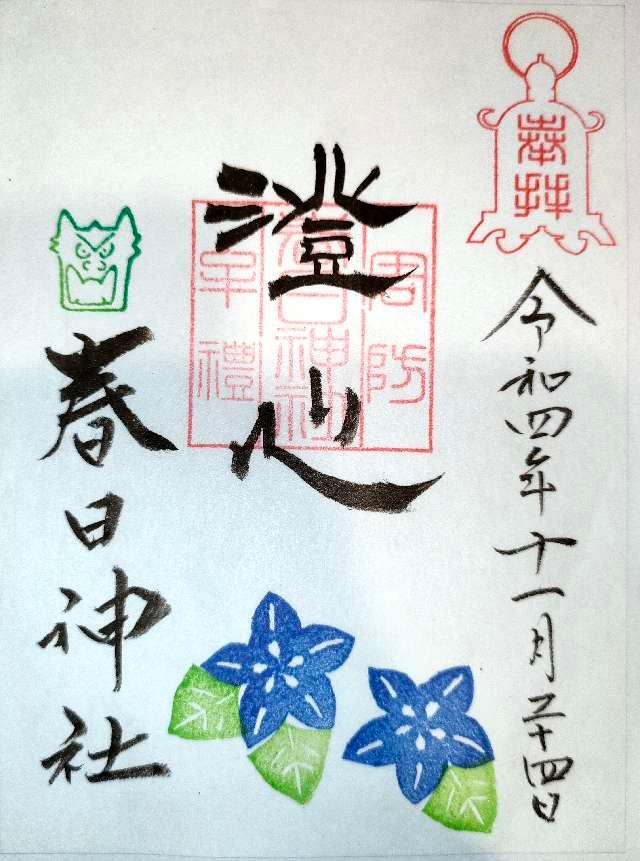 奉拝
令和四年十一月二十四日
澄心
周防
春日神社
牟禮
春日神社